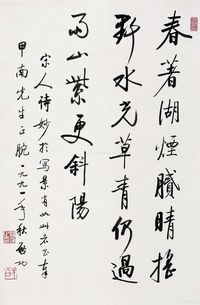 春著湖烟腻晴摇
野水光草青仍过
雨山紫更斜阳
宋人诗妙于写景有此
甲南先生正腕一九九一年秋启功